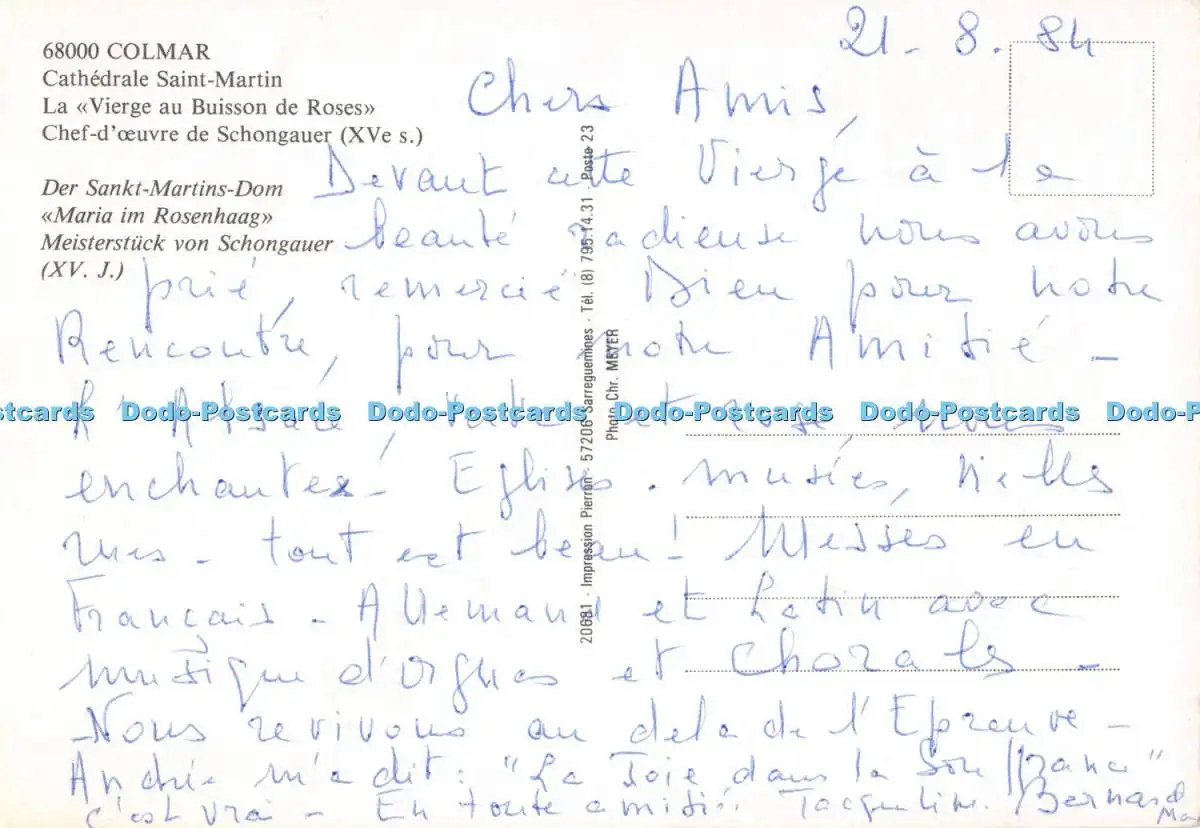 68000 COLMAR
Cathédrale Saint-Martin
La «Vierge au Buisson de Roses»
Chef-d'œuvre de Schongauer (XVe s.)
Der Sankt-Martins-Dom
«Maria im Rosenhaag»
Meisterstück von Schongauer
(XV. J.)
21-8.84
Chers Amis,
Devant cette Vierge à la
beauté radieuse nous avons
prié, remercié Dieu pour notre
Rencontre, pour notre Amitié -
L'Alsace, verte et rose nous
enchantes! Eglises. musées, vielles
rues - tout est beau! Messes en
Français - Allemand et Latin avec
musique d'orgues et Chorals -
Nous revivons au dela de l'Epreuve -
m'a dit: "La Joie dans la Souffrance"
c'est vrai - En toute amitié. Jacqueline. Bernard
20681 - Impression Pierron - 57206 Sarreguemines - Tél. (8) 795.14.31 - Poste 23
Photo Chr. MEYER
Dodo-Postcards Dodo-Postcards Dodo-Postcards Dodo-Postcards